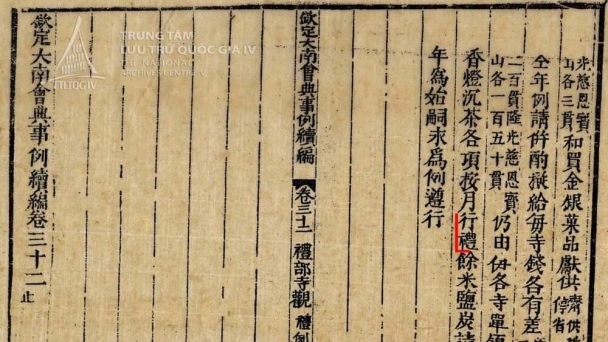 TRUNG TÂM
LƯU TRỮ QUỐC GIA IV
THE NATIONAL
ARCHIVES CENTRE IV
TTLTQGIV
光慈恩寶
山各三貫
和買金銀菓品獻供
齊供
停省
仝年例請併酌撥給每寺錢各有差
二百貫隆光慈恩寶
山各一百五十貫
仍由每各寺單領
香燈沉茶各項按月行禮餘米鹽炭
年為始嗣永為例遵行
欽定大南會典事例續編
卷三十二
禮部寺觀
禮例
欽定大南會典事例續編卷三十二
止